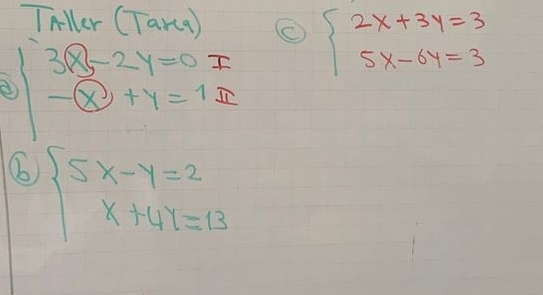 Taller (Tarea)
a) 3x-2y=0 I
-x+y=1 II
b) 5x-y=2
x+4y=13
c) 2x+3y=3
5x-6y=3